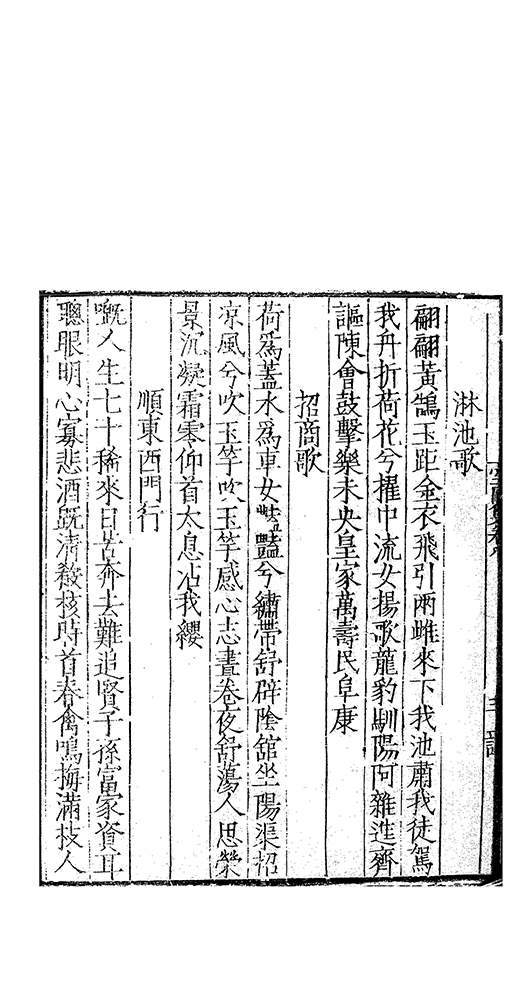 淋池歌
翩翩黃鵠玉距金衣飛引兩雌來下我池肅我徒駕
我舟折荷花兮擢中流女揚歌龍豹馴陽阿雜進齊
謳陳會鼓擊樂未央皇家萬壽民阜康
招商歌
荷爲蓋水爲車女豔豔兮繡帶舒辟陰舘坐陽渠招
凉風兮吹玉竽吹玉竽感心志晝卷夜舒蕩人思榮
景沉凝霜零仰首太息沾我纓
順東西門行
嘅人生七十稀來日苦奔去難追賢子孫富家資耳
聰眼明心寡悲酒既清殽核時首春禽鳴梅滿枝人